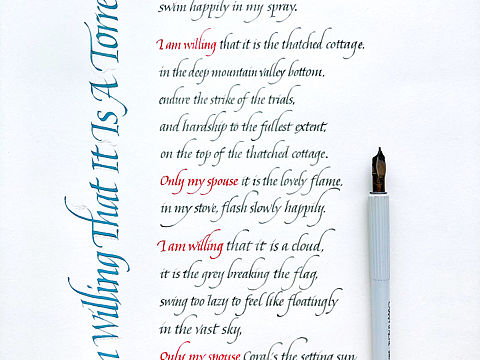 swim happily in my spray.
I am willing that it is the thatched cottage.
in the deep mountain valley bottom.
endure the strike of the trials,
and hardship to the fullest extent,
on the top of the thatched cottage.
Only my spouse it is the lovely flame,
in my stove, flash slowly happily.
I am willing that it is a cloud,
it is the grey breaking the flag,
swing too lazy to feel like floatingly
in the vast sky,
Only my spouse Coral's the setting sun
Willing That It Is A Torre